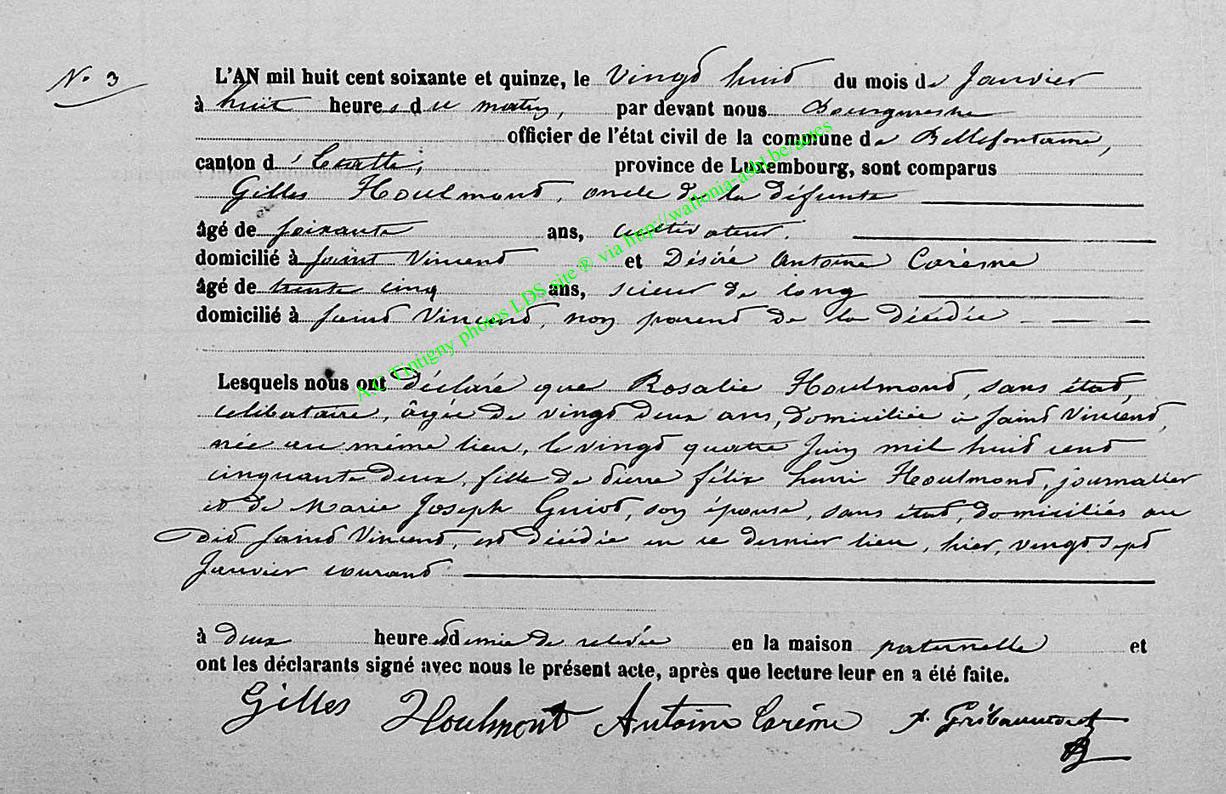 N° 3
L'AN mil huit cent soixante et quinze, le vingt huit du mois de Janvier
à huit heures du matin, par devant nous Bourgmestre
officier de l'état civil de la commune de Bellefontaine,
canton d'Etalle, province de Luxembourg, sont comparus
Gilles Houlmont, oncle de la défunte
âgé de soixante ans, cultivateur,
domicilié à saint Vincent et Désiré Antoine Carême
âgé de trente cinq ans, scieur de long
domicilié à saint Vincent, non parent de la décédée
Lesquels nous ont déclaré que Rosalie Houlmont, sans état,
célibataire, âgée de vingt deux ans, domiciliée à saint Vincent,
née au même lieu, le vingt quatre Juin mil huit cent
cinquante deux, fille de pierre félix henri Houlmont, journalier
et de Marie Joseph Guiot, son épouse, sans état, domiciliés au
dit saint Vincent, est décédée en ce dernier lieu, hier, vingt sept
Janvier courant
à deux heures et demie de relevée en la maison paternelle et
ont les déclarants signé avec nous le présent acte, après que lecture leur en a été faite.
Gilles Houlmont Antoine Carême
A.C. Tintigny photos LDS site ® via http://wallonia-asbl.be/actes